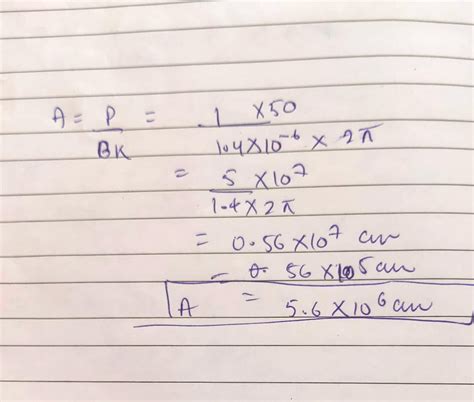 A = P/BK = 1 × 50 / 1.4 × 10⁻⁶ × 2π
= 5 × 10⁷ / 1.4 × 2π
= 0.56 × 10⁷ cm
= 56 × 10⁵ cm
A = 5.6 × 10⁶ cm